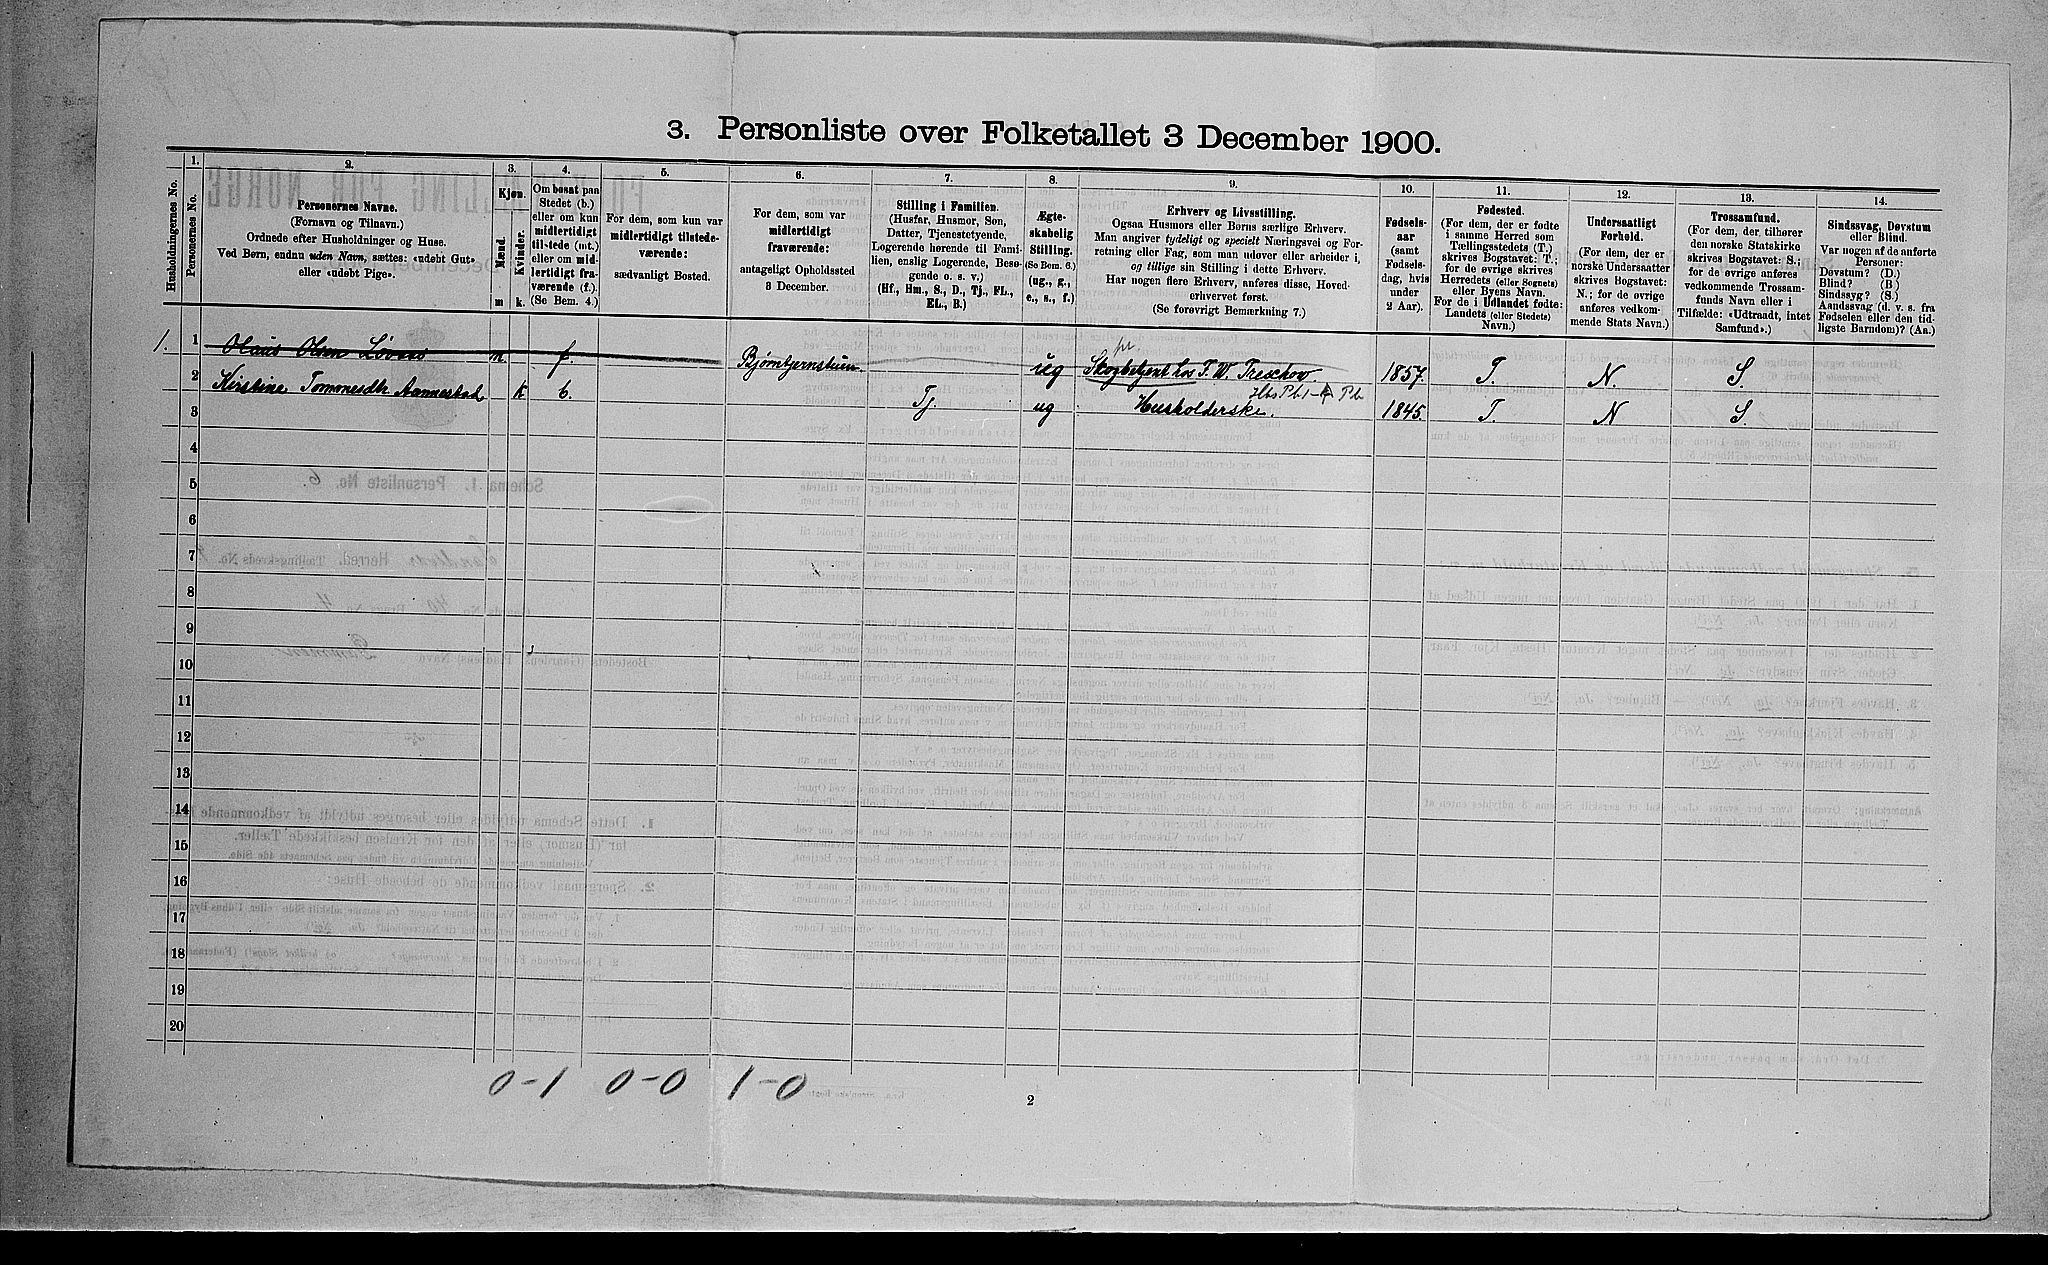 3. Personliste over Folketallet 3 December 1900.
Husholdningernes No.
1.
Personernes No.
2.
Personernes Navne.
(Fornavn og Tilnavn.)
Ordnede efter Husholdninger og Huse.
Ved Børn, endnu uden Navn, sættes: «udøbt Gut»
eller «udøbt Pige».
3.
Kjøn.
Mænd.
Kvinder.
m
k.
4.
Om bosat paa
Stedet (b.)
eller om kun
midlertidigt
tilstede (mt.)
eller om mid-
lertidigt fra-
værende (f.).
(Se Bem. 4.)
5.
For dem, som kun var
midlertidigt tilstede-
værende:
sædvanligt Bosted.
6.
For dem, som var
midlertidigt
fraværende:
antageligt Opholdssted
3 December.
7.
Stilling i Familien.
(Husfar, Husmor, Søn,
Datter, Tjenestetyende,
Logerende hørende til Fami-
lien, enslig Logerende, Besø-
gende o. s. v.)
(Hf., Hm., S., D., Tj., FL.,
EL., B.)
8.
Ægte-
skabelig
Stilling.
(Se Bem. 6.)
(ug., g.,
e., s., f.)
9.
Erhverv og Livsstilling.
Ogsaa Husmors eller Børns særlige Erhverv.
Man angiver tydeligt og specielt Næringsvei og For-
retning eller Fag, som man udøver eller arbeider i,
og tillige sin Stilling i dette Erhverv.
Har nogen flere Erhverv, anføres disse, Hoved-
erhvervet først.
(Se forøvrigt Bemærkning 7.)
10.
Fødsels-
aar
(samt
Fødsels-
dag, hvis
under
2 Aar).
11.
Fødested.
(For dem, der er fødte
i samme Herred som
Tællingsstedets (T.)
skrives Bogstavet: T.;
for de øvrige skrives
Herredets (eller Sognets)
eller Byens Navn.
For de i Udlandet fødte:
Landets (eller Stedets)
Navn.)
12.
Undersaatligt
Forhold.
(For dem, der er
norske Undersaatter
skrives Bogstavet:
N.; for de øvrige
anføres vedkom-
mende Stats Navn.)
13.
Trossamfund.
(For dem, der tilhører
den norske Statskirke
skrives Bogstavet: S.;
for de øvrige anføres
vedkommende Trossam-
funds Navn eller i
Tilfælde: «Udtraadt, intet
Samfund».)
14.
Sindssvag, Døvstum
eller Blind.
Var nogen af de anførte
Personer:
Døvstum? (D.)
Blind? (B.)
Sindssyg? (S.)
Aandssvag (d. v. s. fra
Fødselen eller den tid-
ligste Barndom)? (Aa.)
1. 1 Olaus Olsen Løvaas m. f. Bjørntjernstuen ug Skogbetjent hos F. W. Treschow. 1857. T. N. S.
2 Kirstine Tommesdtr. Aannestad k b. Tj. ug Husholderske. 1845. T. N S.
3
4
5
6
7
8
9
10
11
12
13
14
15
16
17
18
19
20
0-1 0-0 1-0
2